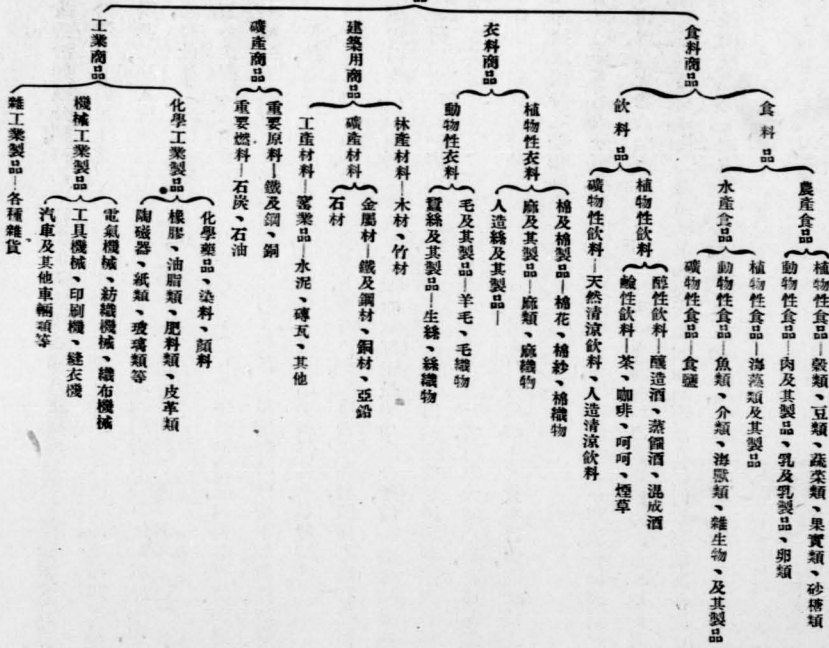 品
食料商品
食料品
農產食品
植物性食品—穀類、豆類、蔬菜類、果實類、砂糖類
動物性食品—肉及其製品、乳及乳製品、卵類
水產食品
植物性食品—海藻類及其製品
動物性食品—魚類、介類、海獸類、雜生物、及其製品
礦物性食品—食鹽
飲料品
植物性飲料
醇性飲料—釀造酒、蒸餾酒、混成酒
鹼性飲料—茶、咖啡、呵呵、煙草
礦物性飲料—天然清涼飲料、人造清涼飲料
衣料商品
植物性衣料
棉及棉製品—棉花、棉紗、棉織物
麻及其製品—麻類、麻織物
人造絲及其製品—
動物性衣料
毛及其製品—羊毛、毛織物
蠶絲及其製品—生絲、絲織物
建築用商品
林產材料—木材、竹材
礦產材料
金屬材—鐵及鋼材、銅材、亞鉛
石材
工產材料—窰業品—水泥、磚瓦、其他
礦產商品
重要原料—鐵及鋼、銅
重要燃料—石炭、石油
工業商品
化學工業製品
化學藥品、染料、顏料
橡膠、油脂類、肥料類、皮革類
陶磁器、紙類、玻璃類等
機械工業製品
電氣機械、紡織機械、織布機械
工具機械、印刷機、縫衣機
汽車及其他車輛項等
雜工業製品—各種雜貨、